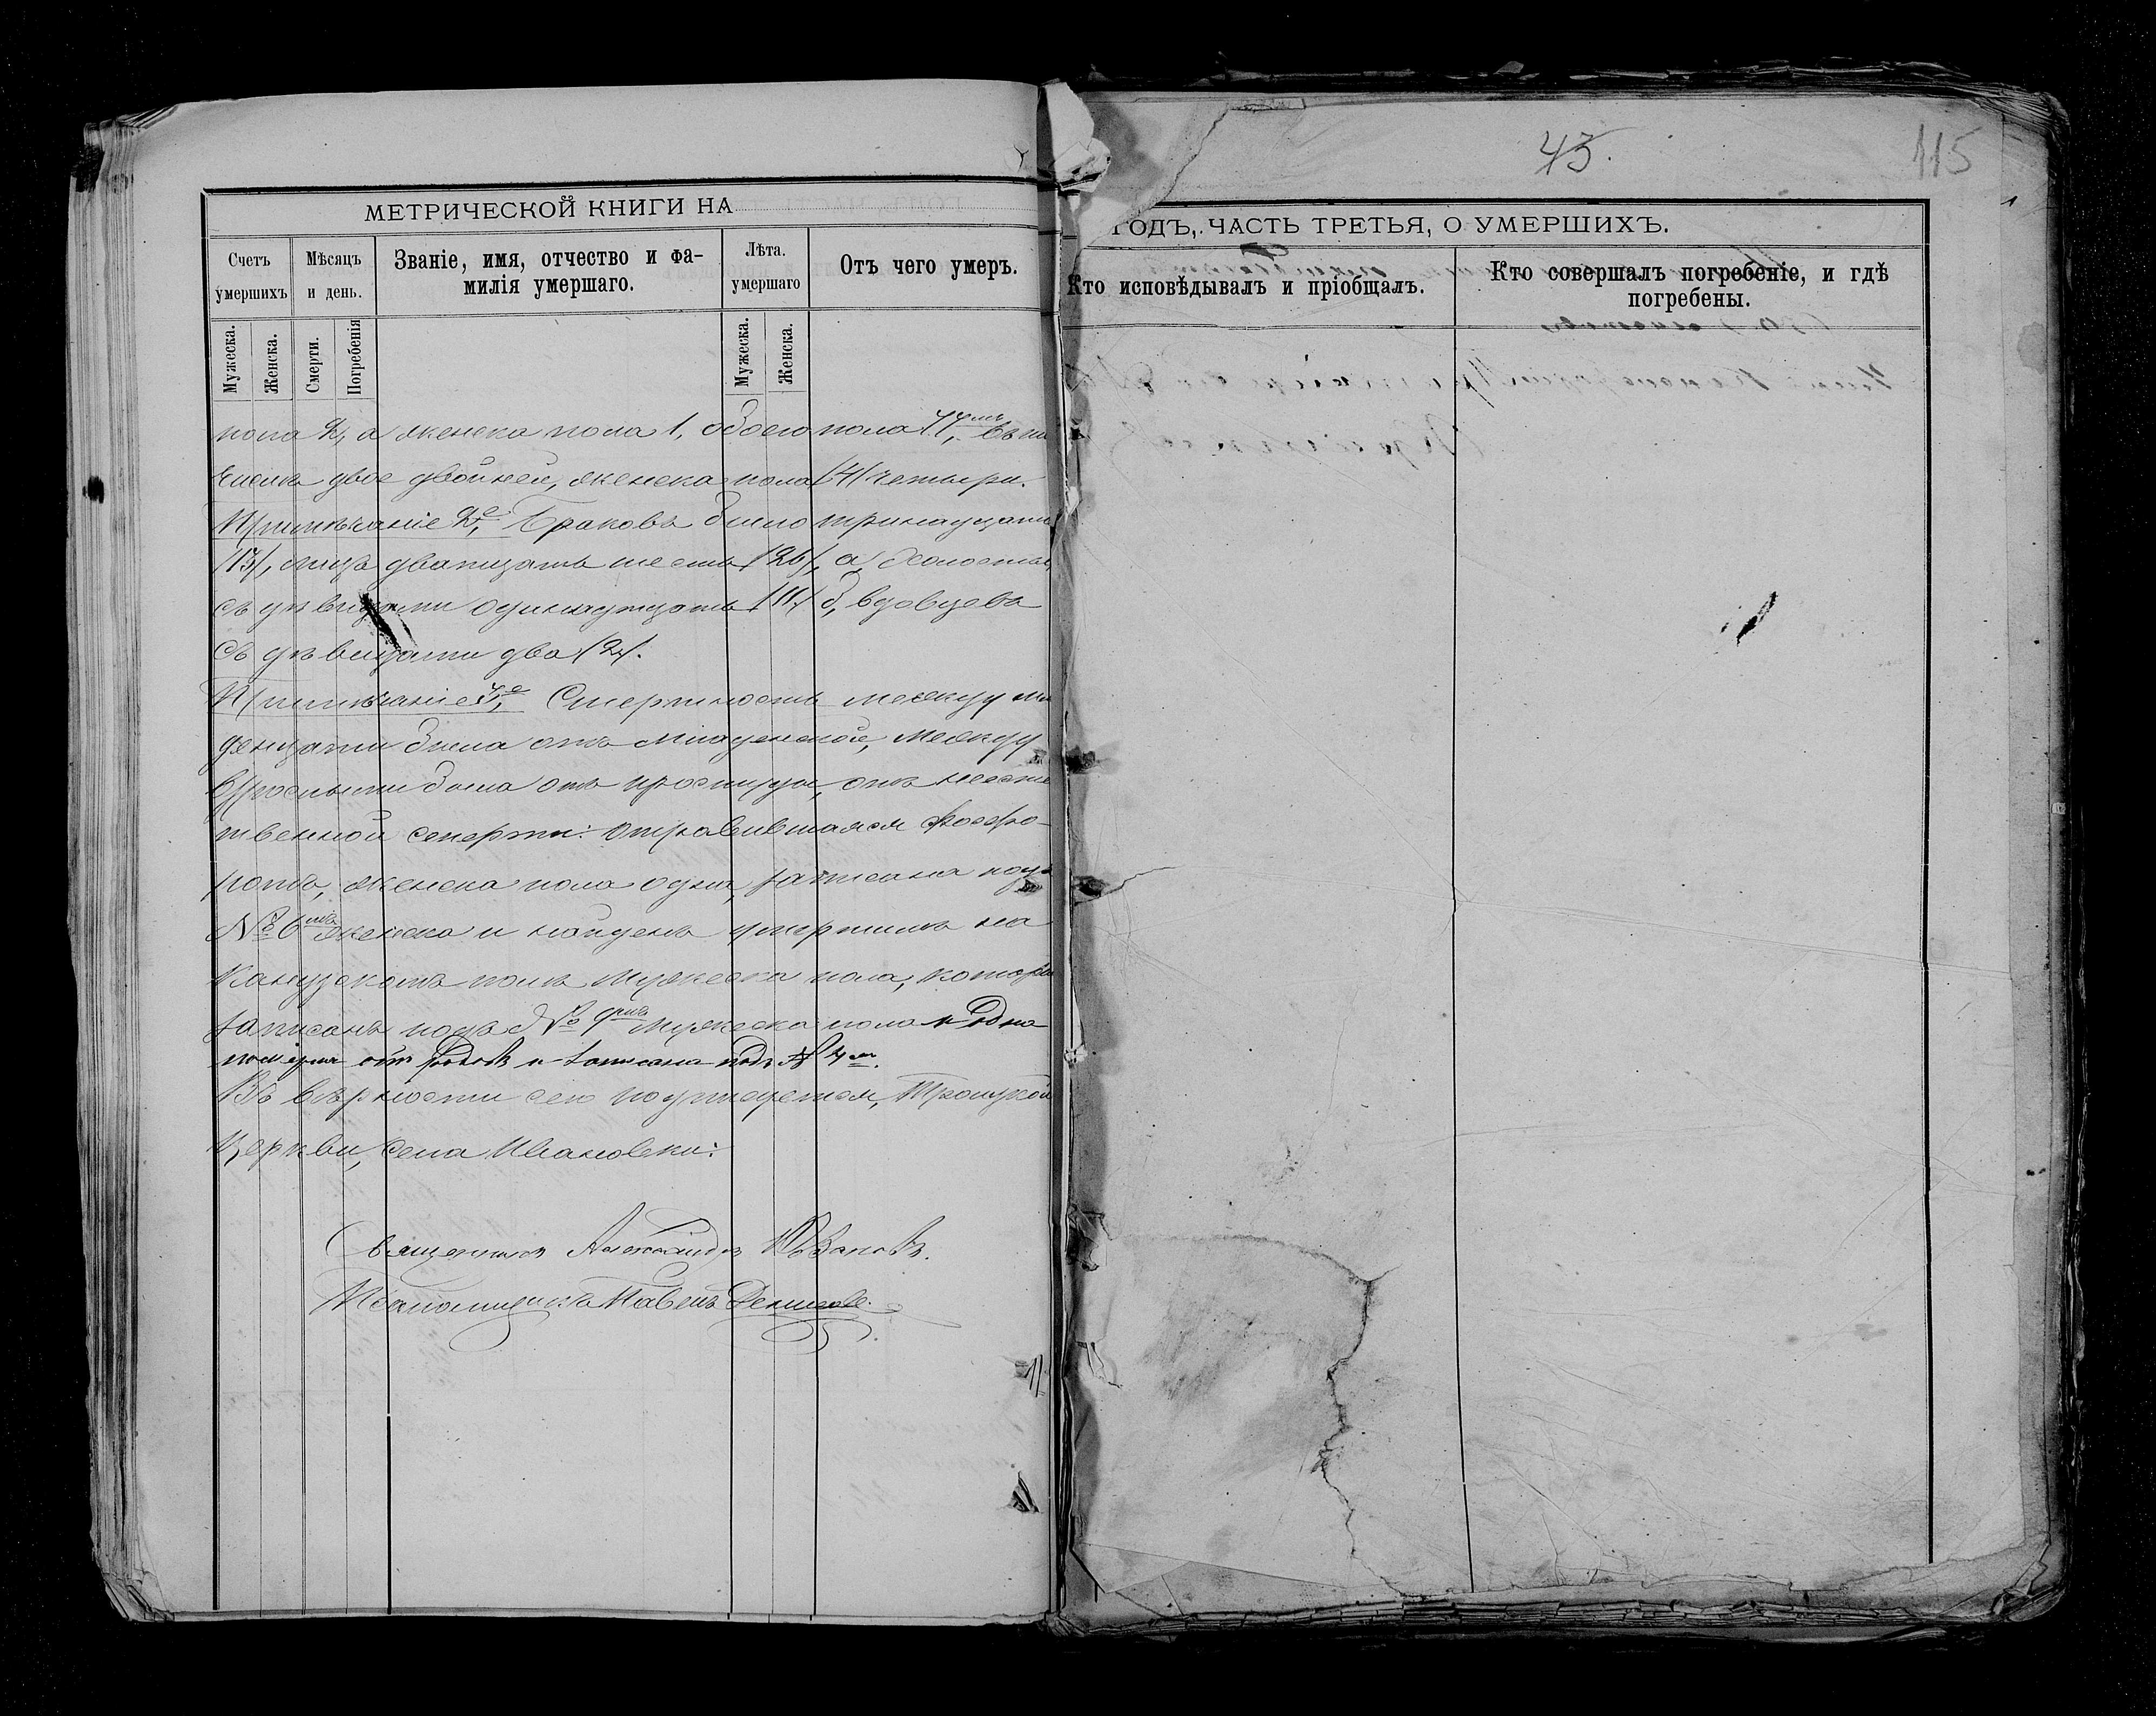 45.
115
МЕТРИЧЕСКОЙ КНИГИ НА
ГОДЪ, ЧАСТЬ ТРЕТЬЯ, О УМЕРШИХЪ.
Счетъ умершихъ
Мѣсяцъ и день.
Званіе, имя, отчество и фа-
милія умершаго.
Лѣта. умершаго
Отъ чего умеръ.
Кто исповѣдывалъ и пріобщалъ.
Кто совершалъ погребеніе, и гдѣ
погребены.
Мужеска.
Женска.
Смерти.
Погребенія
Мужеска.
Женска.
пола а женска пола 1, обоего пола
числѣ двое двойней, женска пола /4/ четыри.
Примѣчаніе 2,е Браковъ было тринадцать
/13/, лицъ дватцать шесть /26/, а, холостыхъ
съ дѣвицами одинадцать /11/ б, вдовцевъ
съ дѣвицами два /2/.
Примѣчаніе 3,е Смертность между мла
денцами была отъ младенской, между
взрослыми была отъ простуды, отъ неесте
твенной смерти: отравившаяся фосфо-
ромъ, женска пола одна, записана подъ
№ 6мъ женска и найденъ умершимъ на
полѣ мужеска пола, который
записанъ подъ № 9мъ мужеска пола и одна
померла отъ родовъ и записана подъ № 4мъ.
Въ вѣрности сего подписуемся, Троицкой
церкви, села Ивановки:
Священникъ Александръ
Псаломщикъ Павелъ Денисов.